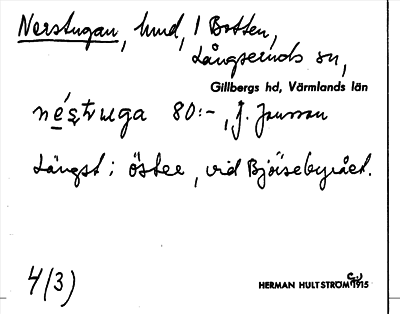 Nerstugan, hmd, i Botten,
Långseruds sn,
Gillbergs hd, Värmlands län
néstuga 80:-, J. Jonsson
Längst i öster, vid Bjöisebyrået.
4(3)
HERMAN HULTSTRÖM 1915